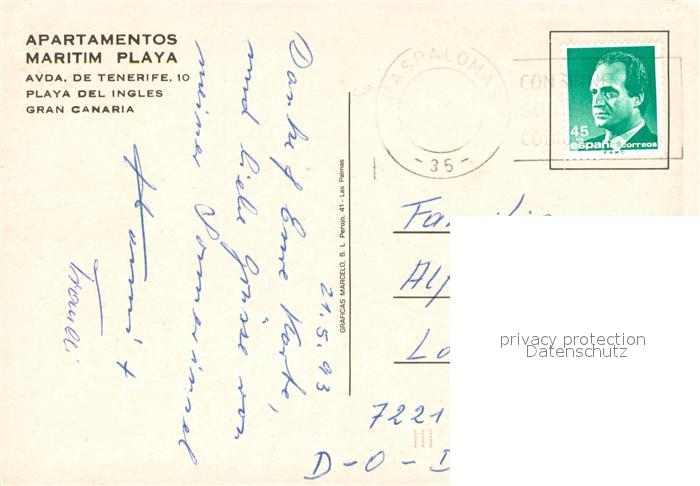 APARTAMENTOS
MARITIM PLAYA
AVDA. DE TENERIFE, 10
PLAYA DEL INGLES
GRAN CANARIA
21.5.93
Dank f Eure Karte,
und liebe Grüsse von
meiner Sommerinsel
Hanni +
Traudi
GRAFICAS MARCELO, S. L. Perojo, 41 - Las Palmas
MASPALOMAS
- 35 -
CON SU
45
españa correos
F.N.M.T.
Fa
Alf
La
7221
D-O-
privacy protection
Datenschutz